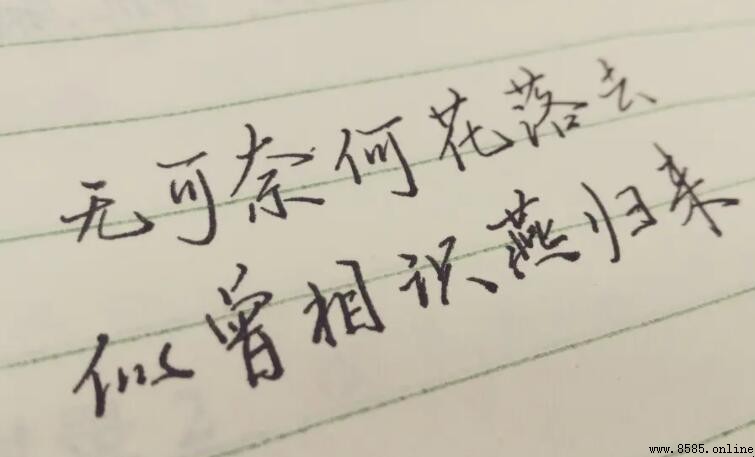 无可奈何花落去
似曾相识燕归来
www.8585.online